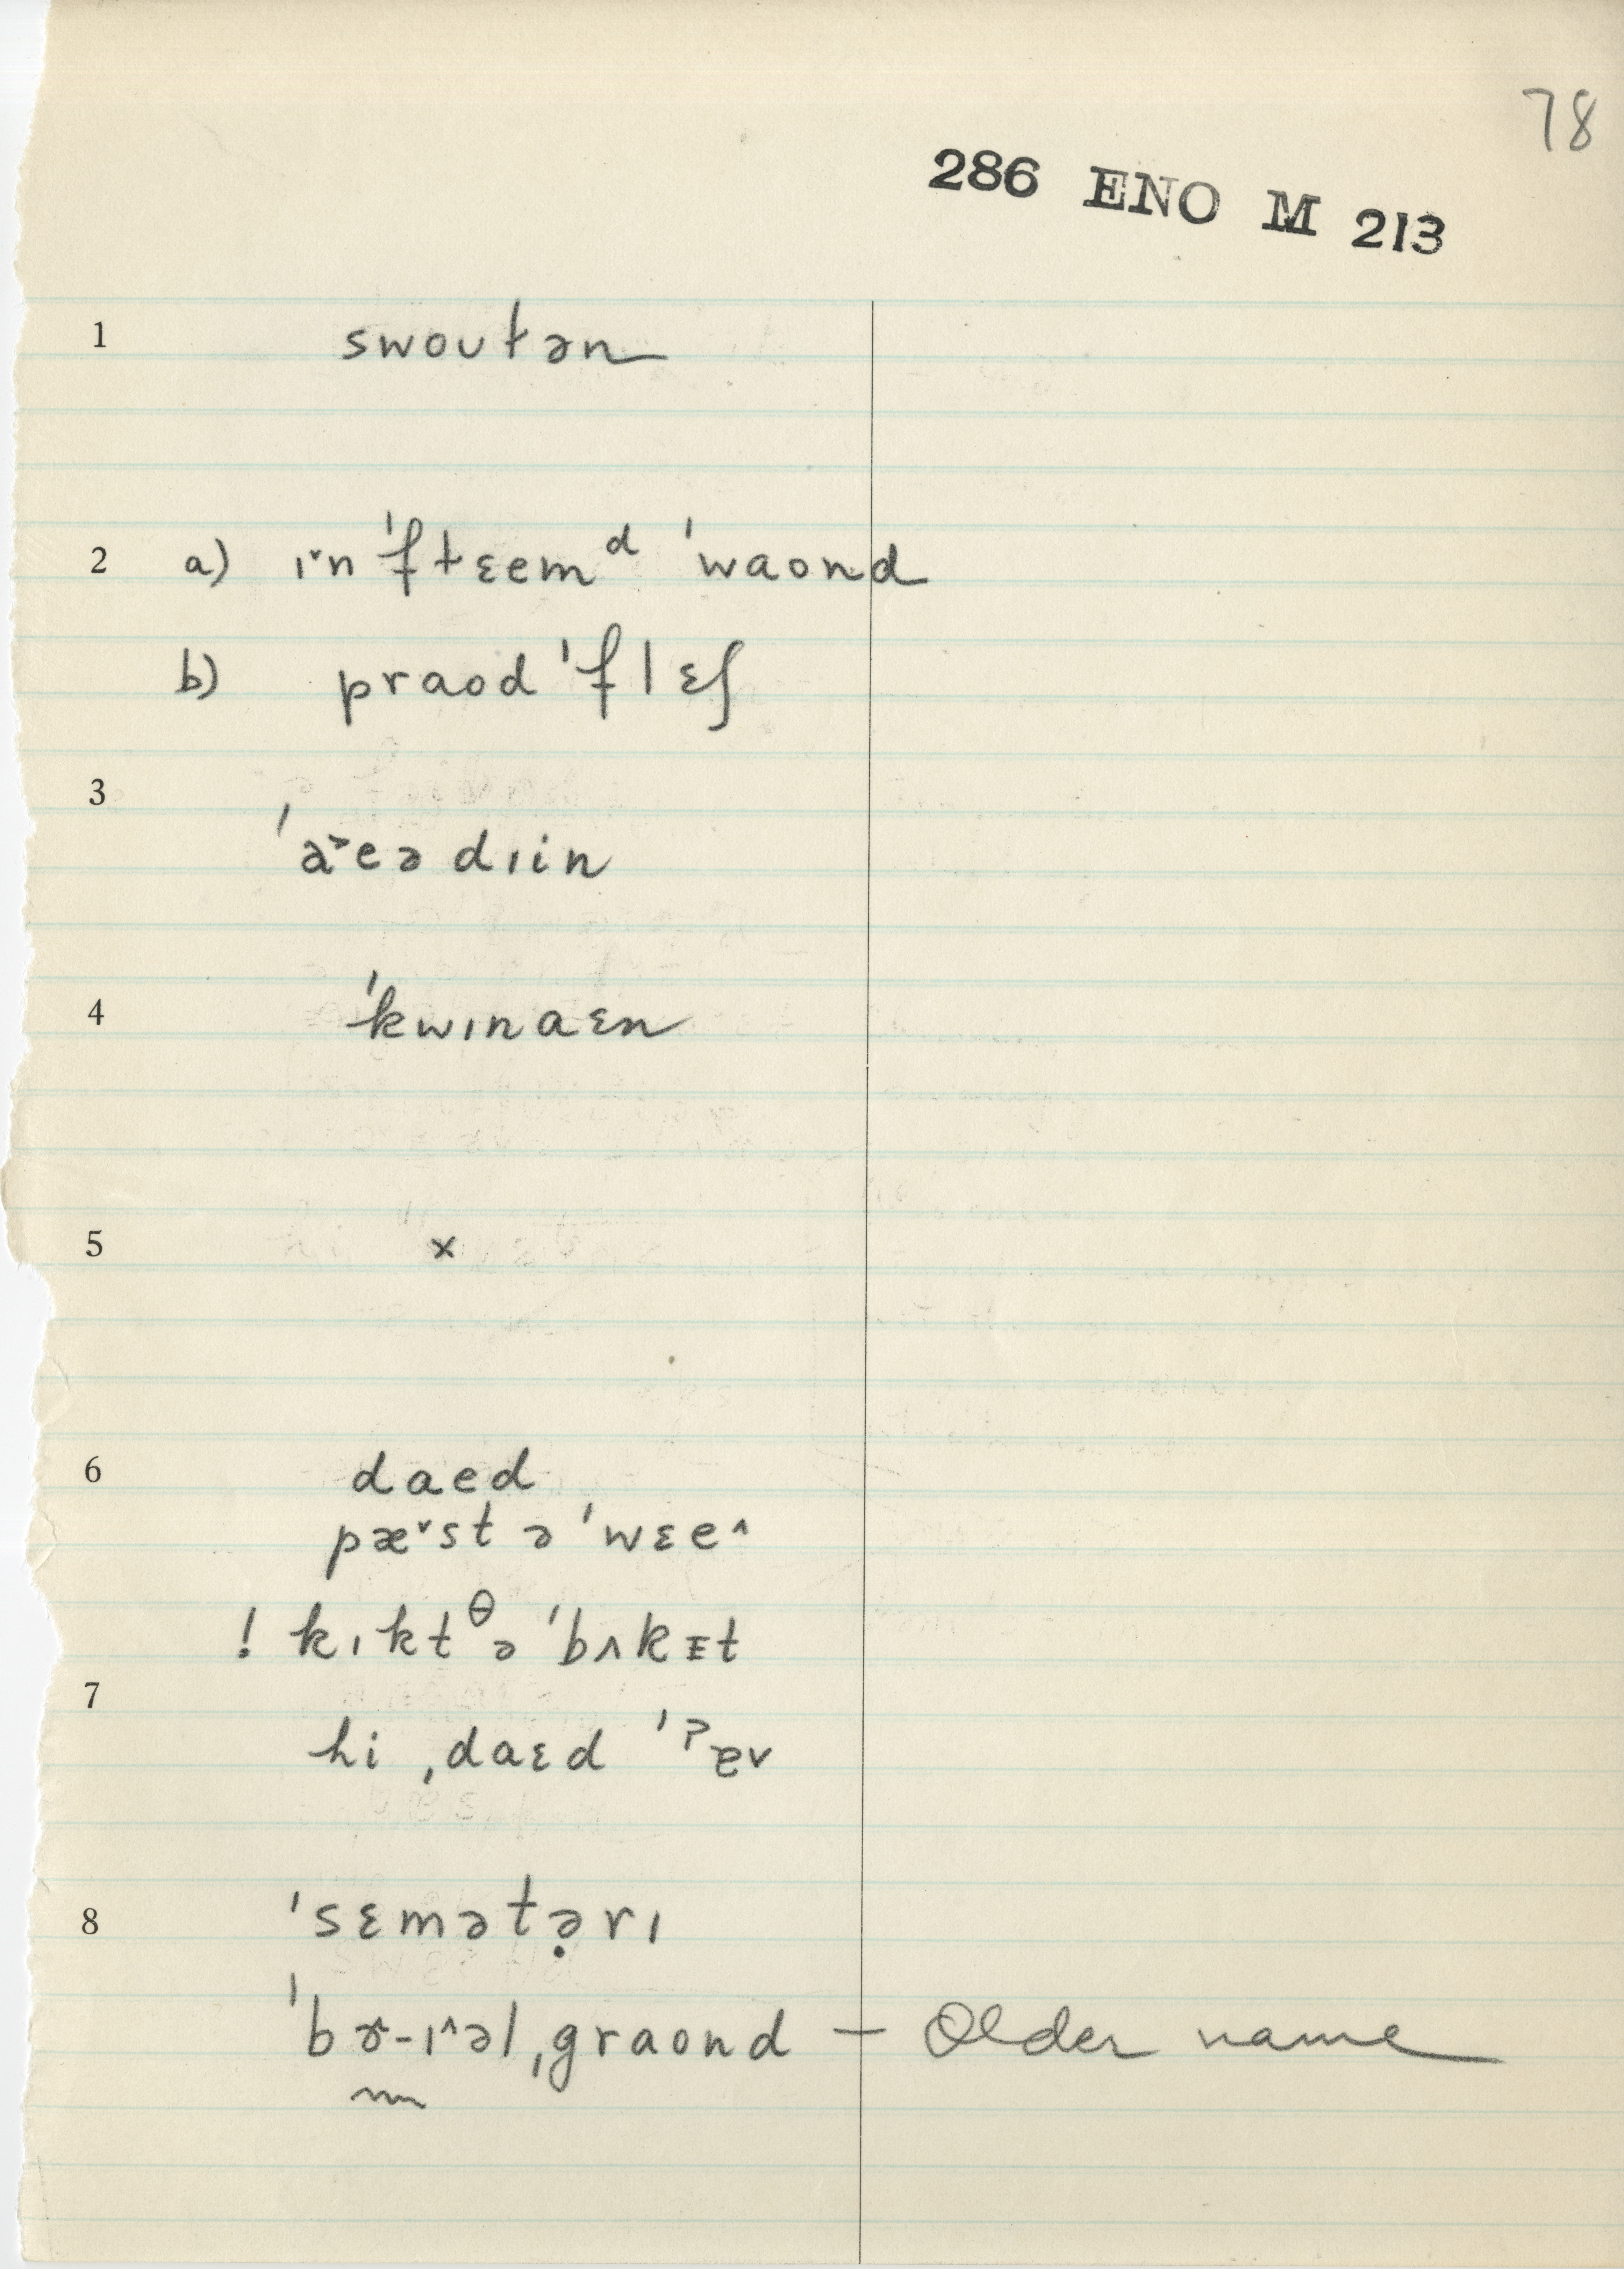 78
286 ENO M 213
1 swoʊtən
2 a) ɪ˅n ˈftɛem ᵈ ˈwaond
b) praod ˈflɛʃ
3
ˈa˃eə dɪin
4 ˈkwɪnaɛn
5 ×
6 daed
pæ˅st ə ˈwɛe^
! kɪkt ᶿə ˈbʌkᵻt
7
hi ˌdaɛd ˈʔɐv
8 ˈsɛmətə̣rɪ
ˈbɚ-ɪ^əl ˌgraond — Older name